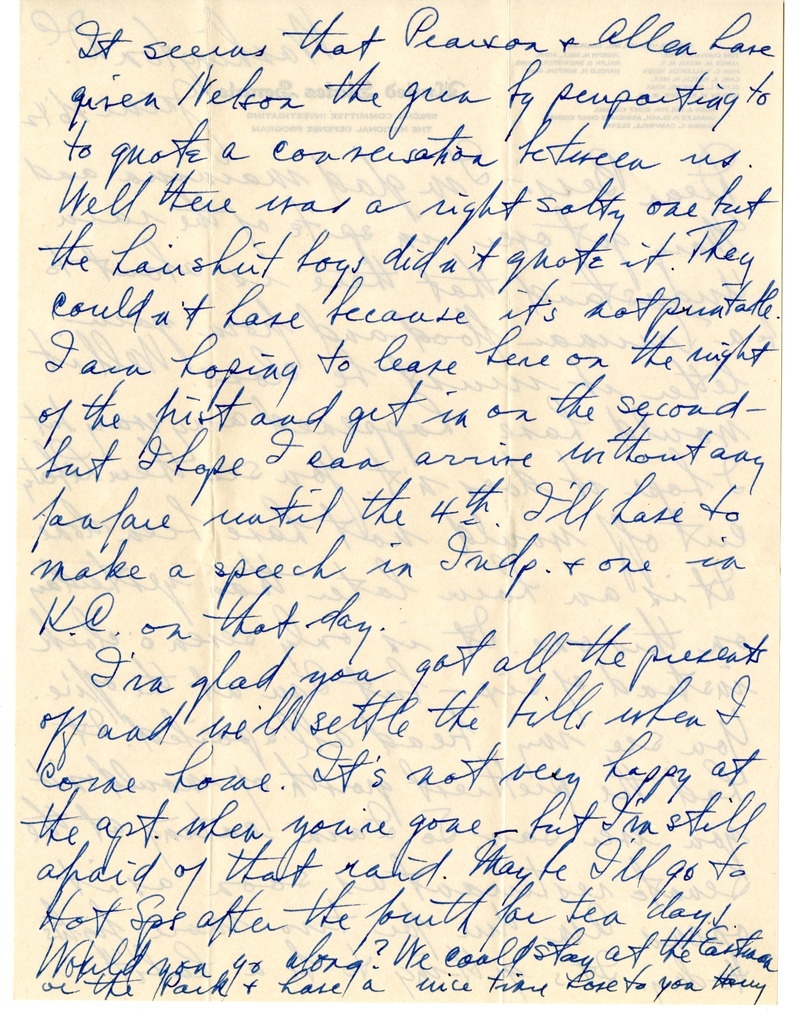 It seems that Pearson & Allen have
given Nelson the gun by purporting to
to quote a conversation between us.
Well there was a right salty one but
the hairshirt boys didn't quote it. They
couldn't have because it's not printable.
I am hoping to leave here on the night
of the first and get in on the second-
but I hope I can arrive without any
fanfare until the 4th. I'll have to
make a speech in Indp. & one in
K.C. on that day.
I'm glad you got all the presents
off and we'll settle the bills when I
come home. It's not very happy at
the apt. when you're gone - but I'm still
afraid of that raid. Maybe I'll go to
Hot Spgs after the fourth for ten days.
Would you go along? We could stay at the Eastman
or the Park & have a nice time Love to you Harry